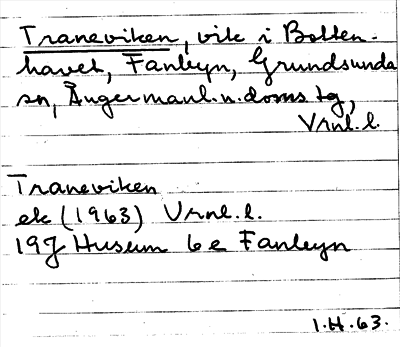 Traneviken, vik i Botten-
havet, Fanbyn, Grundsunda
sn, Ångermanl. n. doms. tg,
Vrnl. l.
Traneviken
ek (1963) Vrnl. l.
19J Husum 6e Fanbyn
1.H.63.